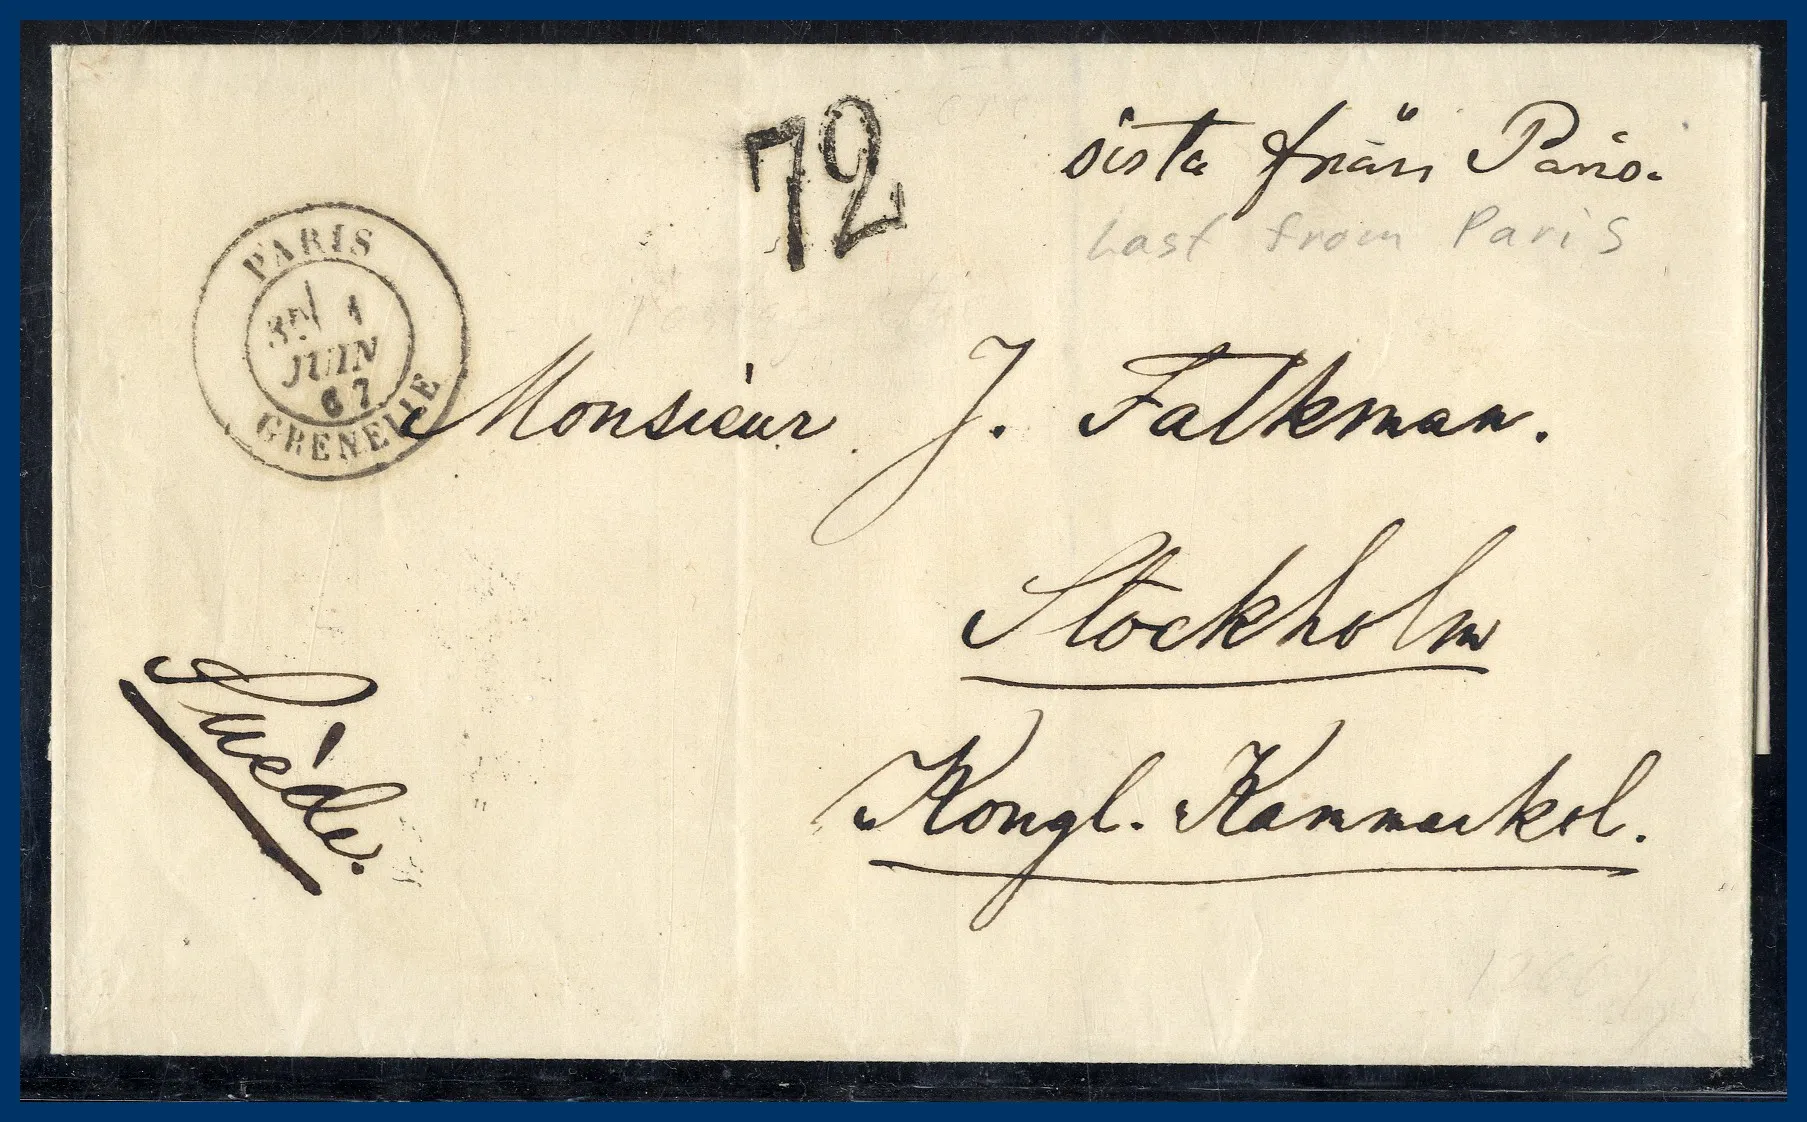 72
sista från Paris.
Last from Paris
PARIS
1
JUIN
67
GRENELLE
Monsieur J. Falkman.
Stockholm
Kongl. Kammarkol.
Suède.